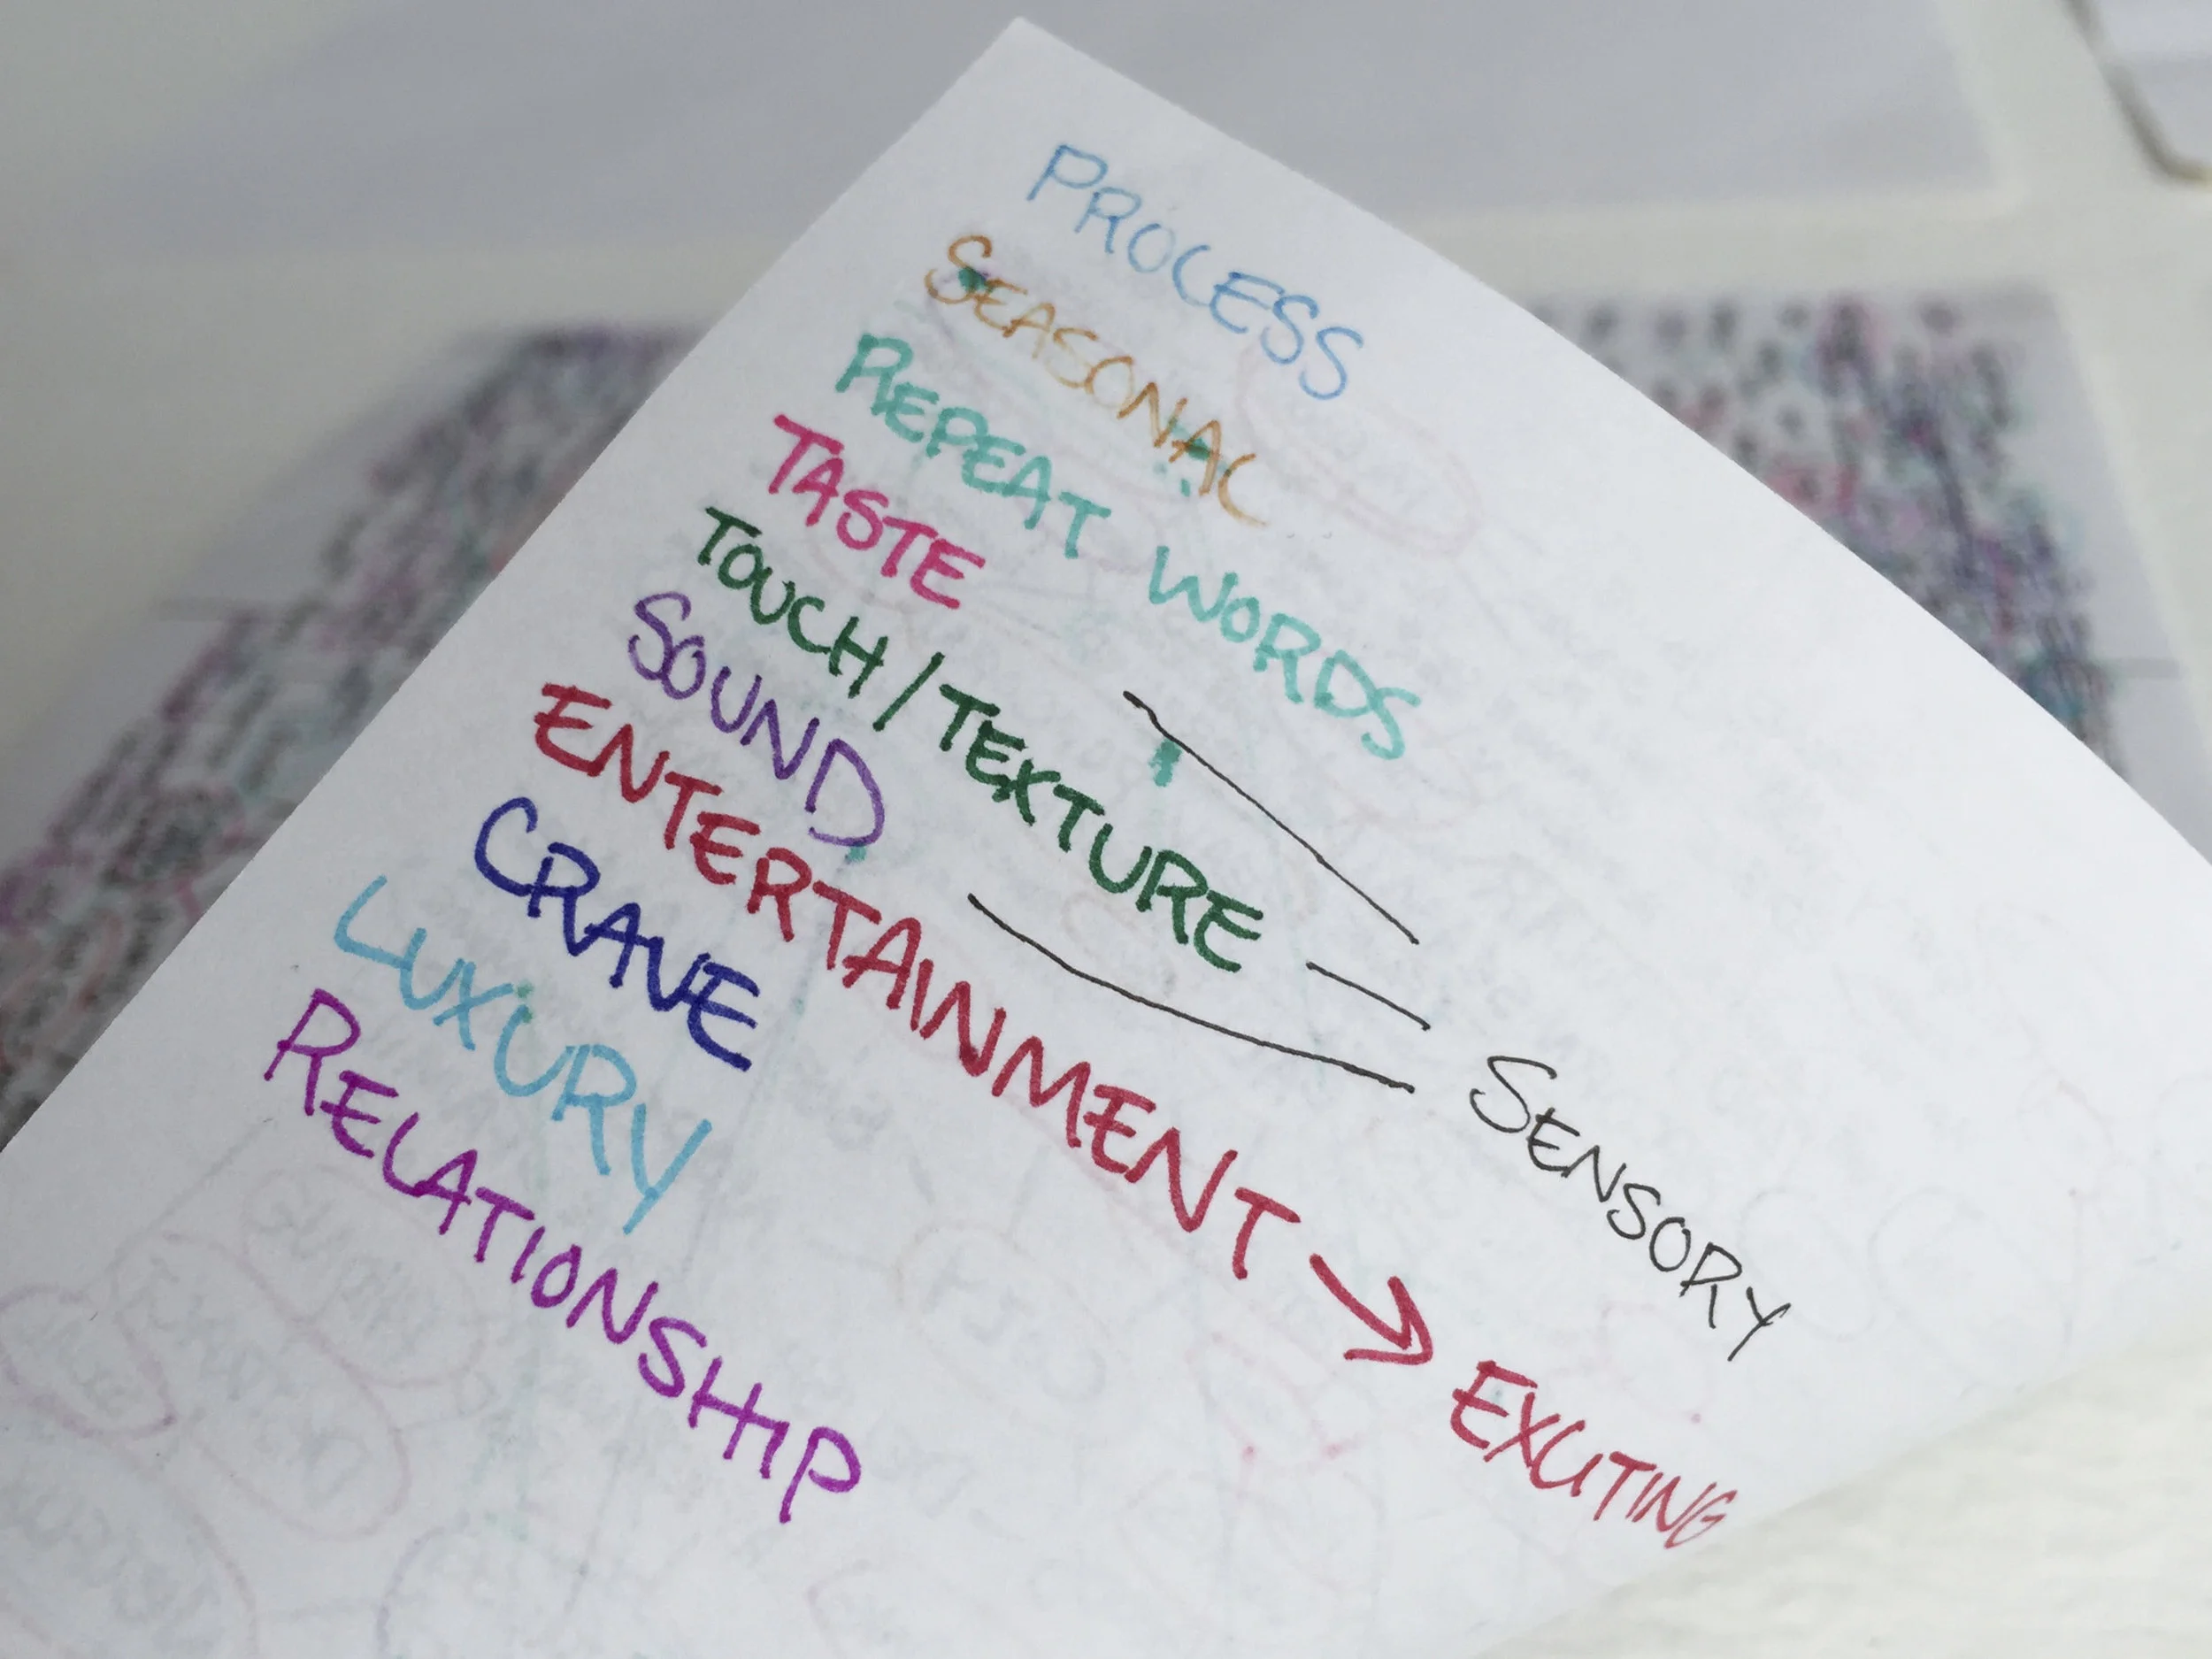 PROCESS
SEASONAL
REPEAT WORDS
TASTE
TOUCH/TEXTURE
SOUND
SENSORY
ENTERTAINMENT → EXCITING
CRAVE
LUXURY
RELATIONSHIP